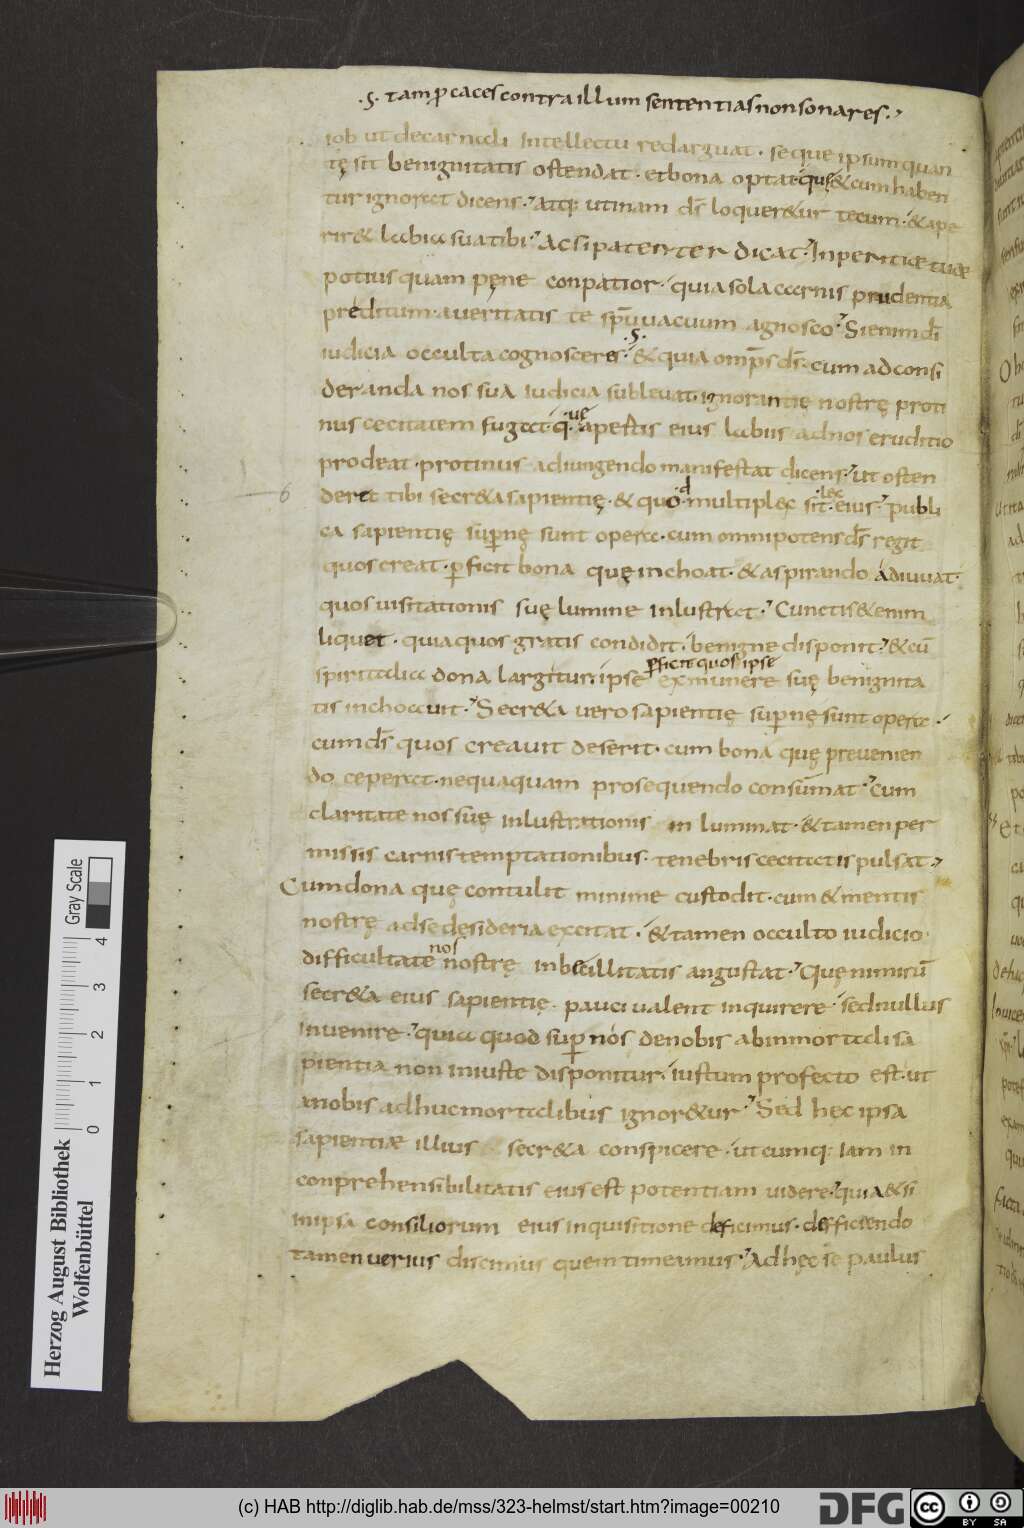 .ς. tam ꝓcaces contra illum sententias non sonares.
iob ut decarnali intellectu redarguat. seque ipsum quan
tę sit benignitatis ostendat. et bona optat quę & cum haben
tur ignorat dicens. Atq: utinam ds̄ loquer&ur tecum. & ape
rir& labia sua tibi. Ac si patenter dicat. Inperitiæ tuæ
potius quam pęne conpatior. quia sola carnis prudentia
preditum. a ueritatis te spū uacuum agnosco. Si enim dī
iudicia occulta cognosceres. .ς. & quia omp̄s ds̄. cum ad consi
deranda nos sua iudicia subleuat. ignorantię nostrę proti
nus cecitatem fugat. quę apertis eius labiis ad nos eruditio
prodeat. protinus adiungendo manifestat dicens. ut osten
6 deret tibi secr&a sapientię. & quod multiplex sit lex eius. publi
ca sapientię sup̄nę sunt opera. cum omnipotens ds̄ regit
quos creat. ꝑficit bona quę inchoat. & aspirando adiuuat.
quos uisitationis suę lumine inlustrat. Cunctis & enim
liquet. quia quos gratis condidit. benigne disponit. & cū
spiritalia dona largitur. ipse ꝑficit quos ipse ex munere suę benignita
tis inchoauit. Secr&a uero sapientię sup̄nę sunt opera.
cum ds̄ quos creauit deserit. cum bona quę preuenien
do ceperat. nequaquam prosequendo consūmat. Cum
claritate nos suę inlustrationis inluminat. & tamen per
missis carnis temptationibus. tenebris cecitatis pulsat.
Cum dona quę contulit minime custodit. cum & mentis
nostrę ad se desideria excitat. & tamen occulto iudicio
difficultate nos nostrę inbecillitatis angustat. Quę nimirū
secr&a eius sapientię. pauci ualent inquirere. sed nullus
inuenire. quia quod sup̄ nos de nobis ab inmortali sa
pientia non iniuste disponitur. iustum profecto est. ut
a nobis adhuc mortalibus ignor&ur. Sed hęc ipsa
sapientiæ illius secr&a conspicere. utcumq: iam in
conprehensibilitatis eius est potentiam uidere. quia & si
in ipsa consiliorum eius inquisitione deficimus. deficiendo
tamen uerius discimus quem timeamus. Ad hęc se paulus
Herzog August Bibliothek
Wolfenbüttel
0 1 2 3 4
Gray Scale
(c) HAB http://diglib.hab.de/mss/323-helmst/start.htm?image=00210
DFG
cc BY SA